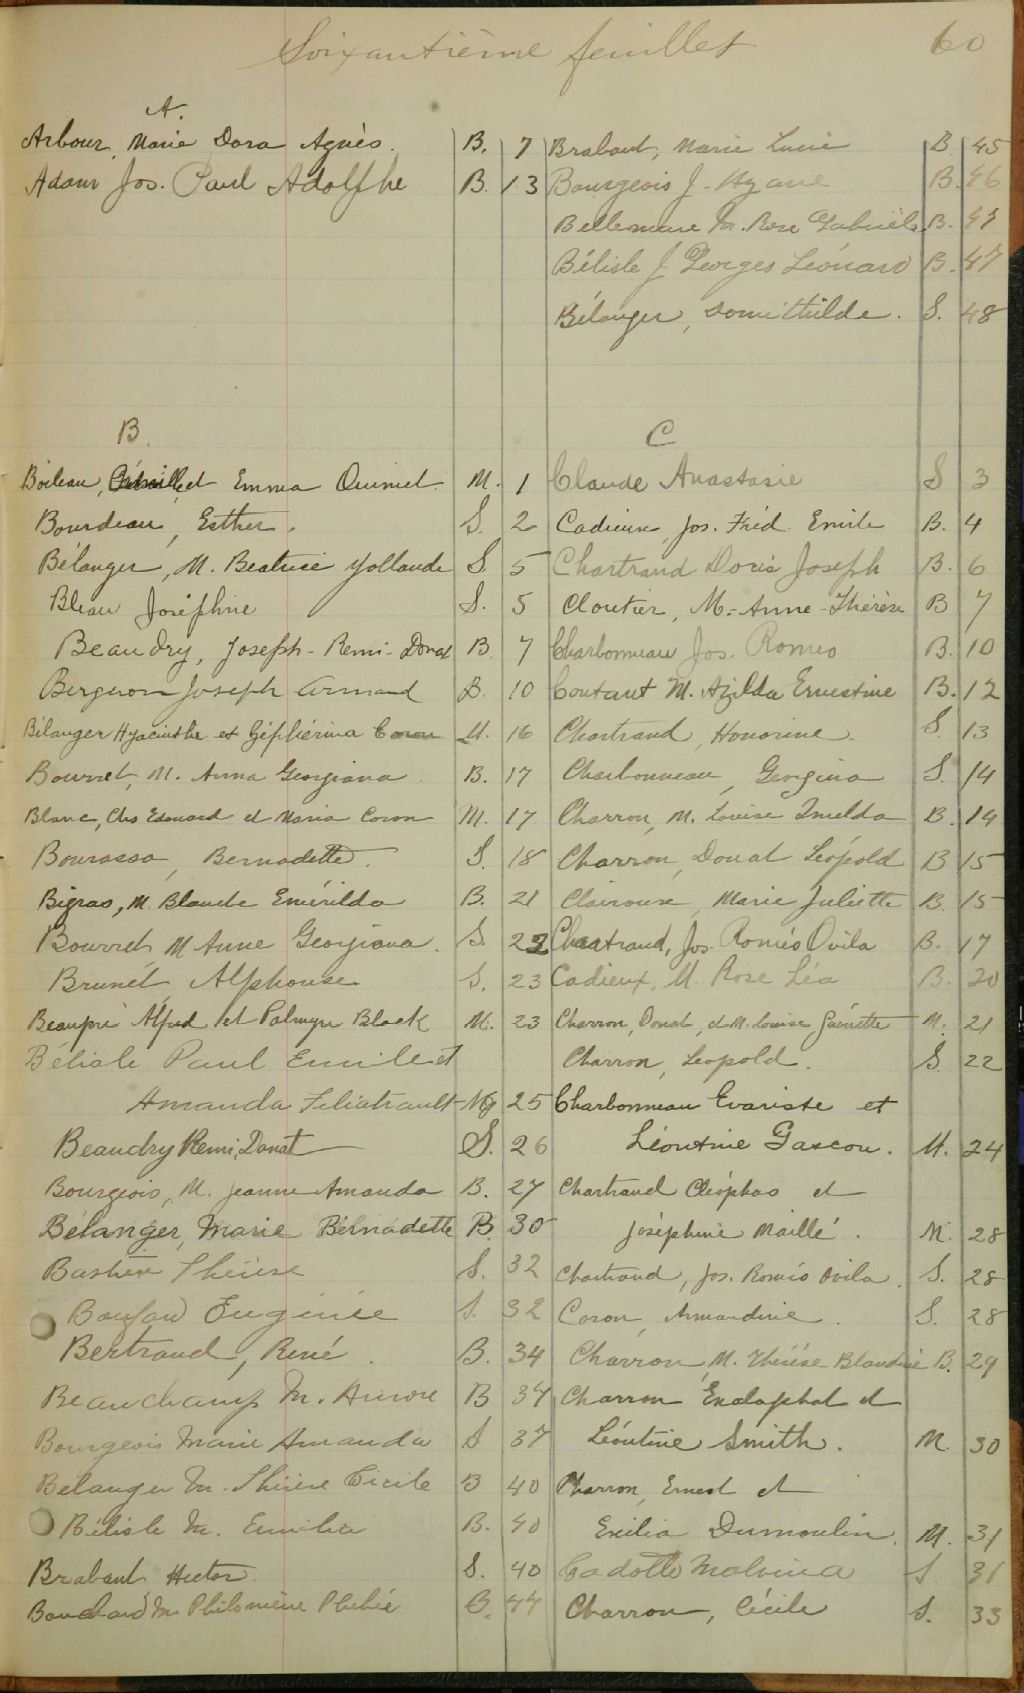 Soixantième feuillet 60
A.
Arbour, Marie Dora Agnès. B. 7
Adam Jos. Paul Adolphe B. 13
B.
Boileau, et Emma Ouimet. M. 1
Bourdeau, Esther. S. 2
Bélanger, M. Beatrice Yollande S. 5
Bleau Joséphine S. 5
Beaudry, Joseph-Remi-Donat B. 7
Bergeron Joseph Armand B. 10
Bélanger Hyacinthe et Géphérina Coron M. 16
Bourret, M. Anna Georgiana. B. 17
Blanc, Chs Edouard et Maria Coron M. 17
Bourassa, Bernadette. S. 18
Bigras, M. Blanche Emérilda B. 21
Bourret, M Anne Georgiana. S. 22
Brunet, Alphonse S. 23
Beaupré Alfred et Palmyre Black M. 23
Bélisle Paul Emile et
Amanda Filiatrault Mg 25
Beaudry Remi, Donat S. 26
Bourgeois, M. Jeanne Amanda B. 27
Bélanger, Marie Bernadette B. 30
Bastien Thérèse S. 32
Eugénie S. 32
Bertrand, René. B. 34
Beauchamp M. Aurore B 37
Bourgeois Marie Amanda S 37
Bélanger M. Thérèse Cécile B 40
Bélisle M. Emilia B. 40
Brabant Hector. S. 40
Bouchard M. Philomène Phébée B. 44
Brabant, Marie Lucie B. 45
Bourgeois J. B. 46
Bellemare M. Rose Gabrielle B.
Bélisle J. Georges Léonard B. 47
Bélanger, Domithilde. S. 48
C
Claude Anastasie S 3
Cadieux, Jos. Fréd. Emile B. 4
Chartrand Doris Joseph B. 6
Cloutier, M.-Anne-Thérèse B 7
Charbonneau Jos. Romeo B. 10
Coutant M. Azilda Ernestine B. 12
Chartrand, Honorine. S. 13
Charbonneau, Georgina S. 14
Charron, M. Louise Imelda B. 14
Charron, Donat Léopold B 15
Clairoux, Marie Juliette B. 15
Chartrand, Jos. Roméo Ovila B. 17
Cadieux, M. Rose Léa B. 20
Charron, Donat, et M. Louise Guénette M. 21
Charron, Leopold. S. 22
Charbonneau Evariste et
Léontine Gascon. M. 24
Chartrand Cléophas et
Joséphine Maillé. M. 28
Chartrand, Jos. Roméo Ovila. S. 28
Coron, Amandine. S. 28
Charron, M. Thérèse Blandine B. 29
Charron et
Léontine Smith. M. 30
Charron, Ernest et
Exilia Dumoulin. M. 31
Cadotte Malvina S. 31
Charron, Cécile S. 33